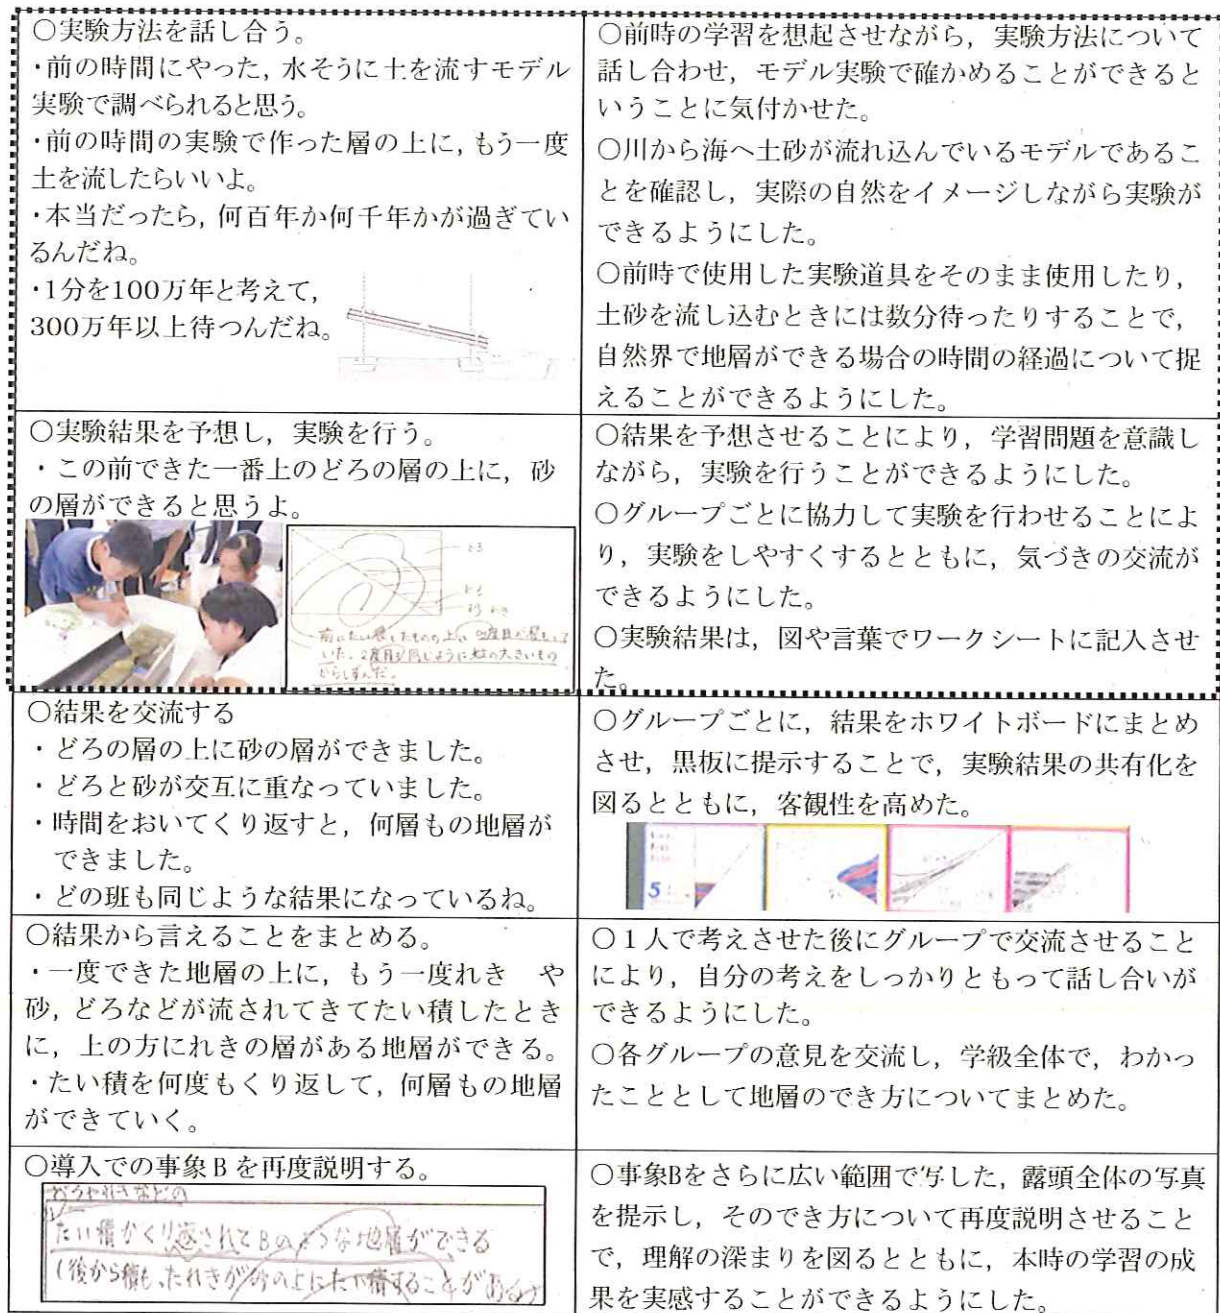 ○実験方法を話し合う。
・前の時間にやった,水そうに土を流すモデル
実験で調べられると思う。
・前の時間の実験で作った層の上に,もう一度
土を流したらいいよ。
・本当だったら,何百年か何千年かが過ぎてい
るんだね。
・1分を100万年と考えて,
300万年以上待つんだね。
○前時の学習を想起させながら，実験方法について
話し合わせ，モデル実験で確かめることができると
いうことに気付かせた。
○川から海へ土砂が流れ込んでいるモデルであるこ
とを確認し，実際の自然をイメージしながら実験が
できるようにした。
○前時で使用した実験道具をそのまま使用したり，
土砂を流し込むときには数分待ったりすることで，
自然界で地層ができる場合の時間の経過について捉
えることができるようにした。
○実験結果を予想し，実験を行う。
・この前できた一番上のどろの層の上に，砂
の層ができると思うよ。
からしずんだ。
○結果を予想させることにより，学習問題を意識し
ながら，実験を行うことができるようにした。
○グループごとに協力して実験を行わせることによ
り，実験をしやすくするとともに，気づきの交流が
できるようにした。
○実験結果は，図や言葉でワークシートに記入させ
た。
○結果を交流する
・どろの層の上に砂の層ができました。
・どろと砂が交互に重なっていました。
・時間をおいてくり返すと，何層もの地層が
できました。
・どの班も同じような結果になっているね。
○グループごとに，結果をホワイトボードにまとめ
させ，黒板に提示することで，実験結果の共有化を
図るとともに，客観性を高めた。
5
○結果から言えることをまとめる。
・一度できた地層の上に，もう一度れき　や
砂，どろなどが流されてきてたい積したとき
に，上の方にれきの層がある地層ができる。
・たい積を何度もくり返して，何層もの地層
ができていく。
○１人で考えさせた後にグループで交流させること
により，自分の考えをしっかりともって話し合いが
できるようにした。
○各グループの意見を交流し，学級全体で，わかっ
たこととして地層のでき方についてまとめた。
○導入での事象Bを再度説明する。
たい積がくり返されてBのような地層ができる
(後から積もったれきが砂の上にたい積することがある
○事象Bをさらに広い範囲で写した，露頭全体の写真
を提示し，そのでき方について再度説明させること
で，理解の深まりを図るとともに，本時の学習の成
果を実感することができるようにした。